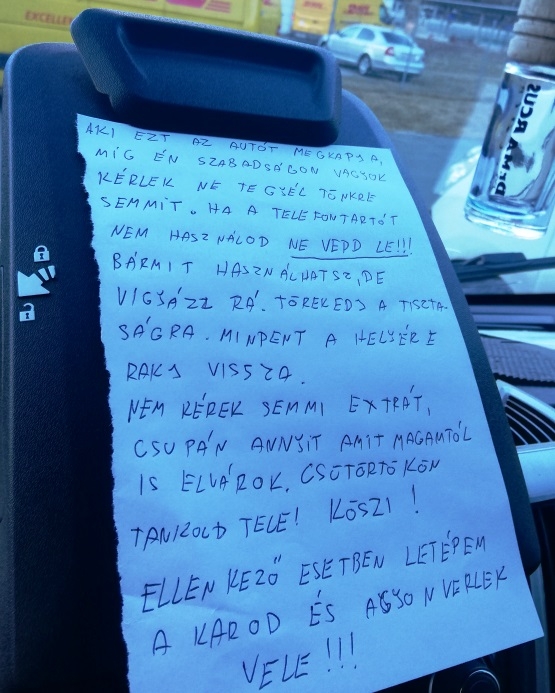 EXCELLEN
DHL
DHL
DI MARCUS
AKI EZT AZ AUTÓT MEGKAPJA,
MÍG ÉN SZABADSÁGON VAGYOK
KÉRLEK NE TEGYÉL TÖNKRE
SEMMIT. HA A TELEFONTARTÓT
NEM HASZNÁLOD NE VEDD LE!!!
BÁRMIT HASZNÁLHATSZ, DE
VIGYÁZZ RÁ. TÖREKEDJ A TISZTA-
SÁGRA. MINDENT A HELYÉRE
RAKJ VISSZA.
NEM KÉREK SEMMI EXTRÁT,
CSUPÁN ANNYIT AMIT MAGAMTÓL
IS ELVÁROK. CSÜTÖRTÖKÖN
TANKOLD TELE! KÖSZI!
ELLENKEZŐ ESETBEN LETÉPEM
A KAROD ÉS AGYONVERLEK
VELE!!!